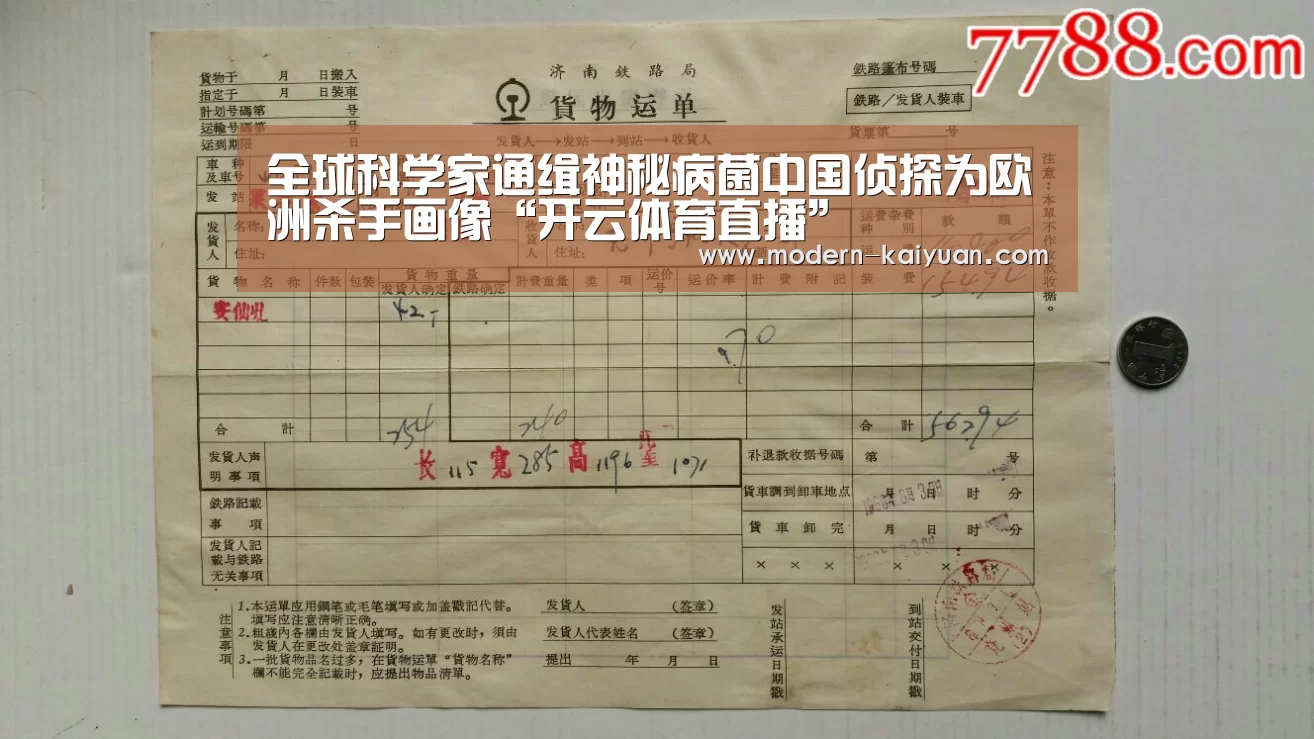 7788.com
貨物于 月 日搬入
指定于 月 日装車
計划号碼第 号
运輸号碼第 号
运到期限 日
济南鉄路局
貨物运单
发貨人→发站→到站→收貨人
鉄路篷布号碼
鉄路/发貨人裝車
貨票第 号
全球科学家通缉神秘病菌中国侦探为欧
洲杀手画像“开云体育直播”
www.modern-kaiyuan.com
車种
及車号
发站
发貨人 名称:
住址:
收貨人
住址:
运費杂費
种別
款額
注意:本單不作收款收据。
貨物名称 件数 包裝 貨物重量 計費重量 类項 运价号 运价率 計費附記 装費 15494
发貨人确定 鉄路确定
42T
9.70
合計 354 340 合計 56294
发貨人声
明事項
长 115 寬 285 高 1196 1071
补退款收据号碼 第 号
鉄路記載
事項
貨車調到卸車地点 月 日 时 分
貨車卸完 月 日 时 分
发貨人記
載与鉄路
无关事項
× × × × × ×
注意事項
1.本运单应用鋼笔或毛笔填写或加盖戳記代替。
填写应注意清晰正确。
2.粗綫内各欄由发貨人填写。如有更改时，須由
发貨人在更改处盖章証明。
3.一批貨物品名过多，在貨物运單“貨物名称”
欄不能完全記載时，应提出物品清單。
发貨人 (签章)
发貨人代表姓名 (签章)
提出 年 月 日
发站承运日期戳
到站交付日期戳